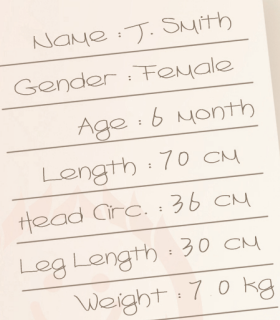 Name : J. Smith
Gender : Female
Age : 6 Month
Length : 70 cm
Head Circ. : 36 cm
Leg Length : 30 cm
Weight : 7.0 kg